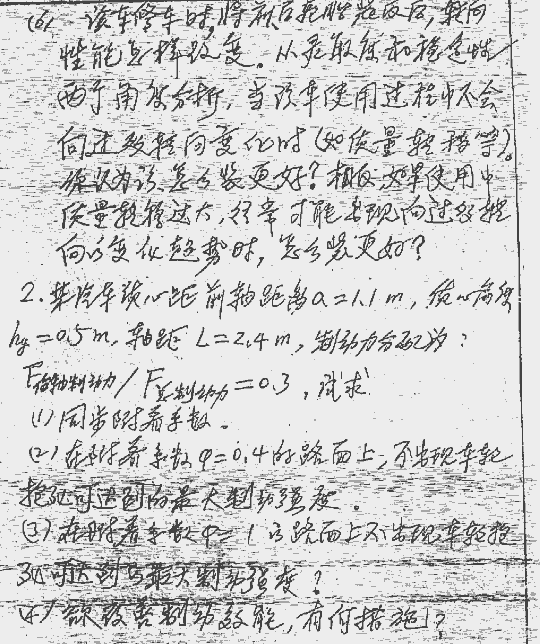 (6) 该车修车时,将前后轮胎装反后,转向
性能怎样改变。从灵敏度和稳定性
两个角度分析,当该车使用过程中不会
向过多转向变化时(如质量转移等)。
你认为该怎么装更好?相反如果使用中
质量转移过大,经常可能出现向过多转
向的变化趋势时,怎么装更好?
2. 某汽车质心距前轴距离a=1.1m,质心高度
hg=0.5m,轴距 L=2.4m,制动力分配为:
F后轴制动力/F总制动力=0.3,试求
(1) 同步附着系数。
(2) 在附着系数φ=0.4的路面上,不出现车轮
抱死可达到的最大制动强度。
(3) 在附着系数φ=1的路面上不出现车轮抱
死可达到的最大制动强度?
(4) 欲改善制动效能,有何措施?